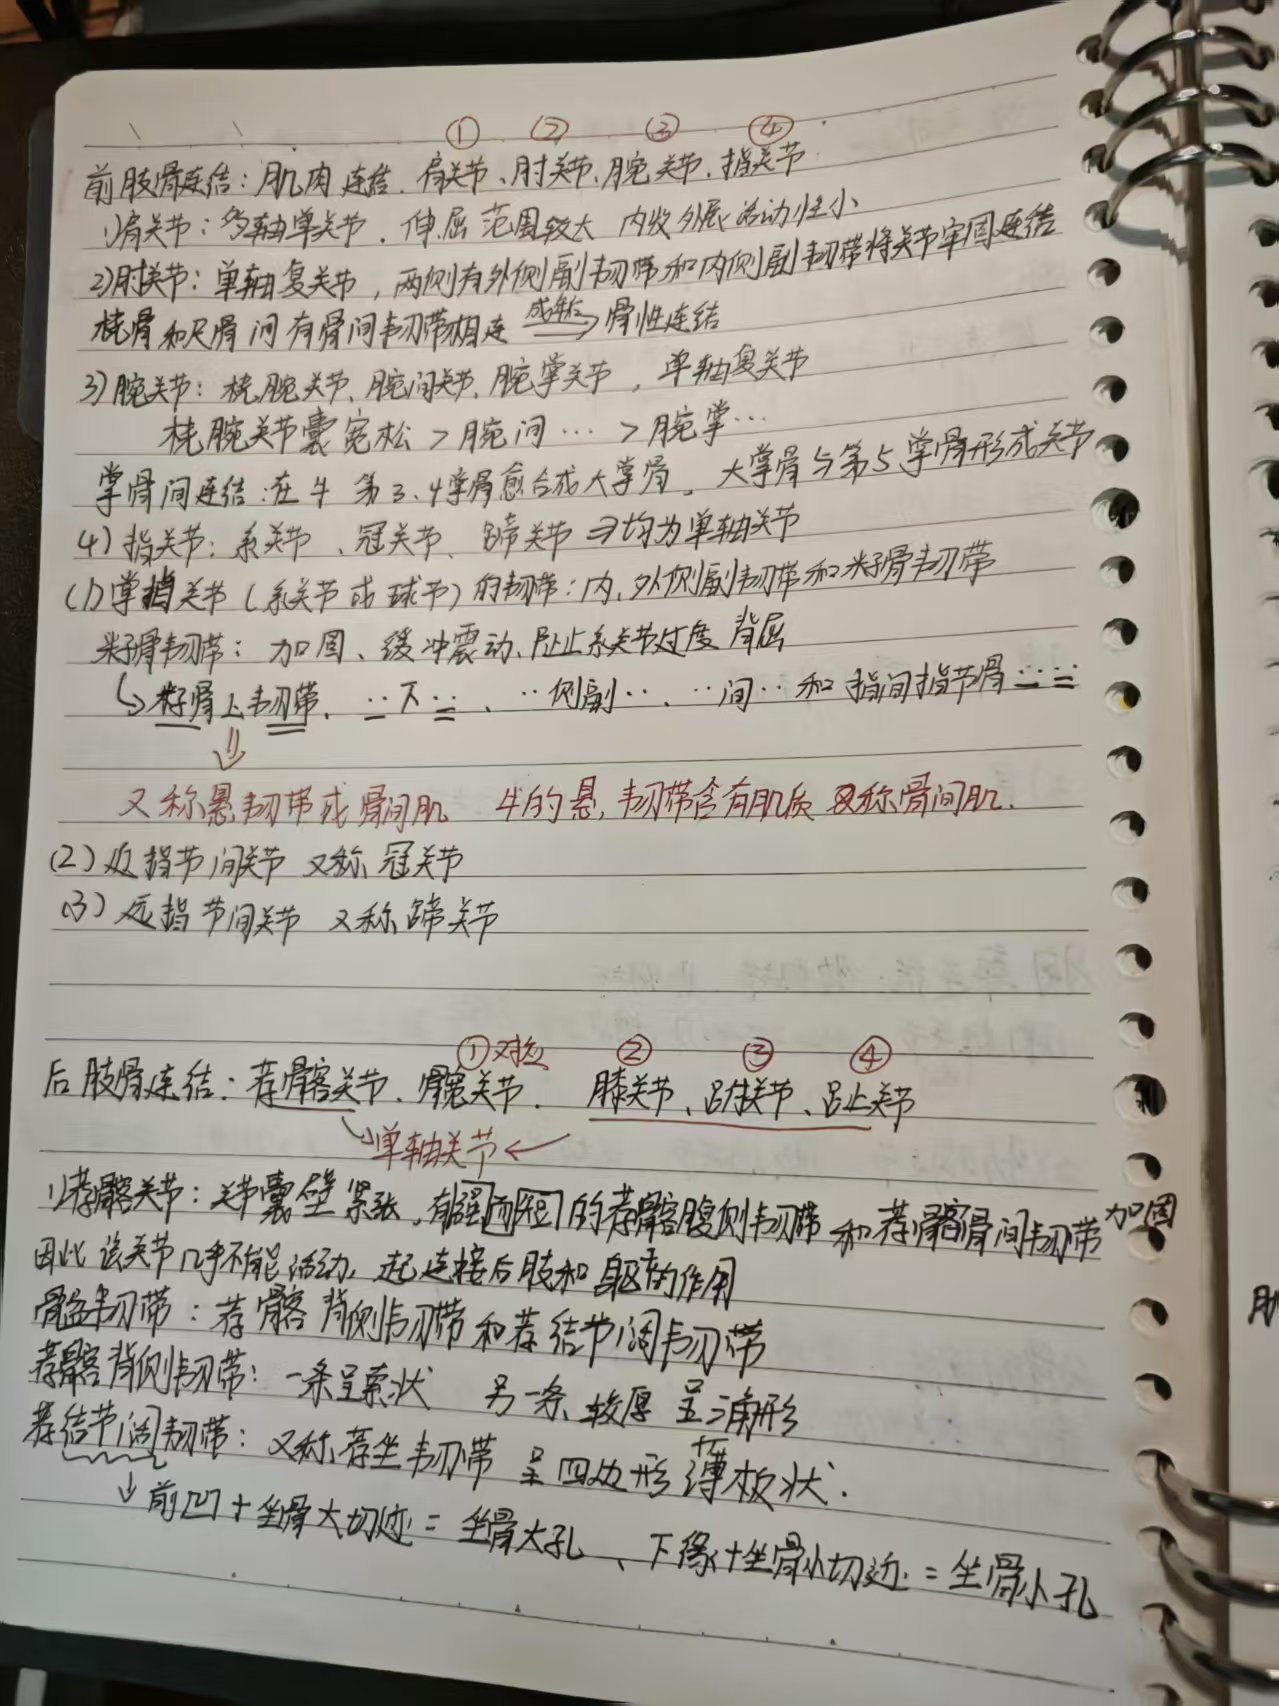 ① ② ③ ④
前肢骨连结：肌肉连结、肩关节、肘关节、腕关节、指关节
1)肩关节：多轴单关节，伸屈范围较大 内收外展活动性小
2)肘关节：单轴复关节，两侧有外侧副韧带和内侧副韧带将关节牢固连结
桡骨和尺骨间有骨间韧带相连 成年后→骨性连结
3)腕关节：桡腕关节、腕间关节、腕掌关节，单轴复关节
桡腕关节囊宽松＞腕间…＞腕掌…
掌骨间连结：在牛 第3、4掌骨愈合成大掌骨。大掌骨与第5掌骨形成关节
4)指关节：系关节、冠关节、蹄关节⇒均为单轴关节
(1)掌指关节(系关节或球节)的韧带：内、外侧副韧带和籽骨韧带
籽骨韧带：加固、缓冲震动、阻止系关节过度背屈
↳籽骨上韧带、‥下‥、‥侧副‥、‥间‥和指间指节骨‥‥
⇓
又称悬韧带或骨间肌 牛的悬韧带含有肌质又称骨间肌.
(2)近指节间关节 又称冠关节
(3)远指节间关节 又称蹄关节
①对应 ② ③ ④
后肢骨连结：荐髂关节、髋关节、膝关节、跗关节、趾关节
↘单轴关节←
1)荐髂关节：关节囊壁紧张，有强而短的荐髂腹侧韧带和荐髂骨间韧带加固
因此该关节几乎不能活动，起连接后肢和躯干的作用
骨盆韧带：荐髂背侧韧带和荐结节阔韧带
荐髂背侧韧带：一条呈索状 另一条较厚呈三角形
荐结节阔韧带：又称荐坐韧带 呈四边形薄板状.
↓前凹+坐骨大切迹=坐骨大孔、下缘+坐骨小切迹=坐骨小孔